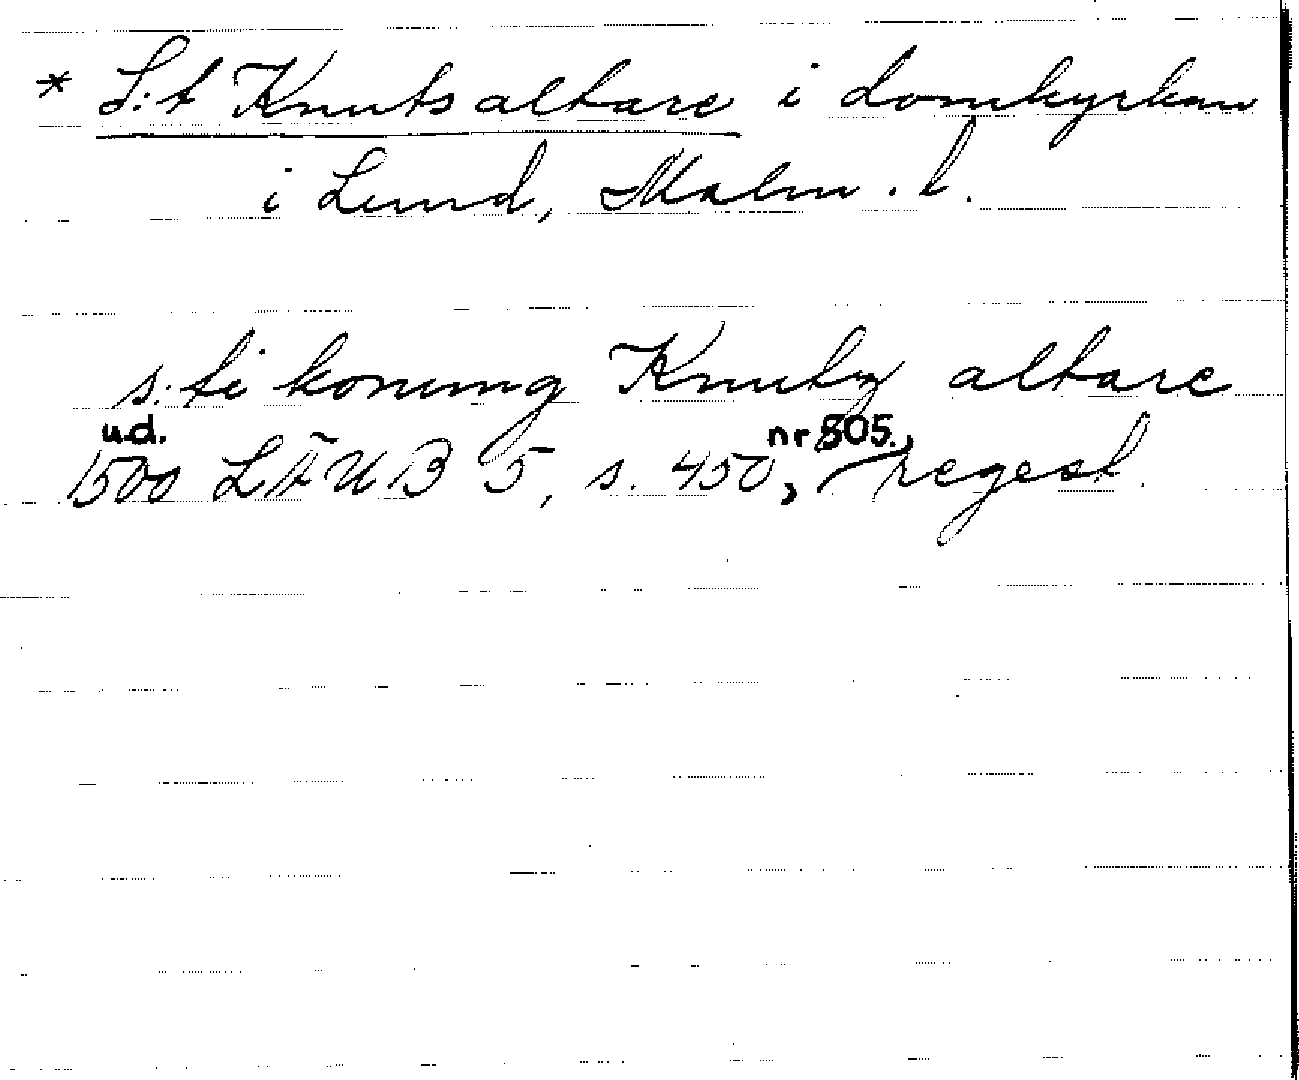 * S:t Knuts altare i domkyrkan
i Lund, Malm. l.
s:ti konung Knutz altare
u.d.
1500 LÄUB 5, s. 450, nr 805, regest.